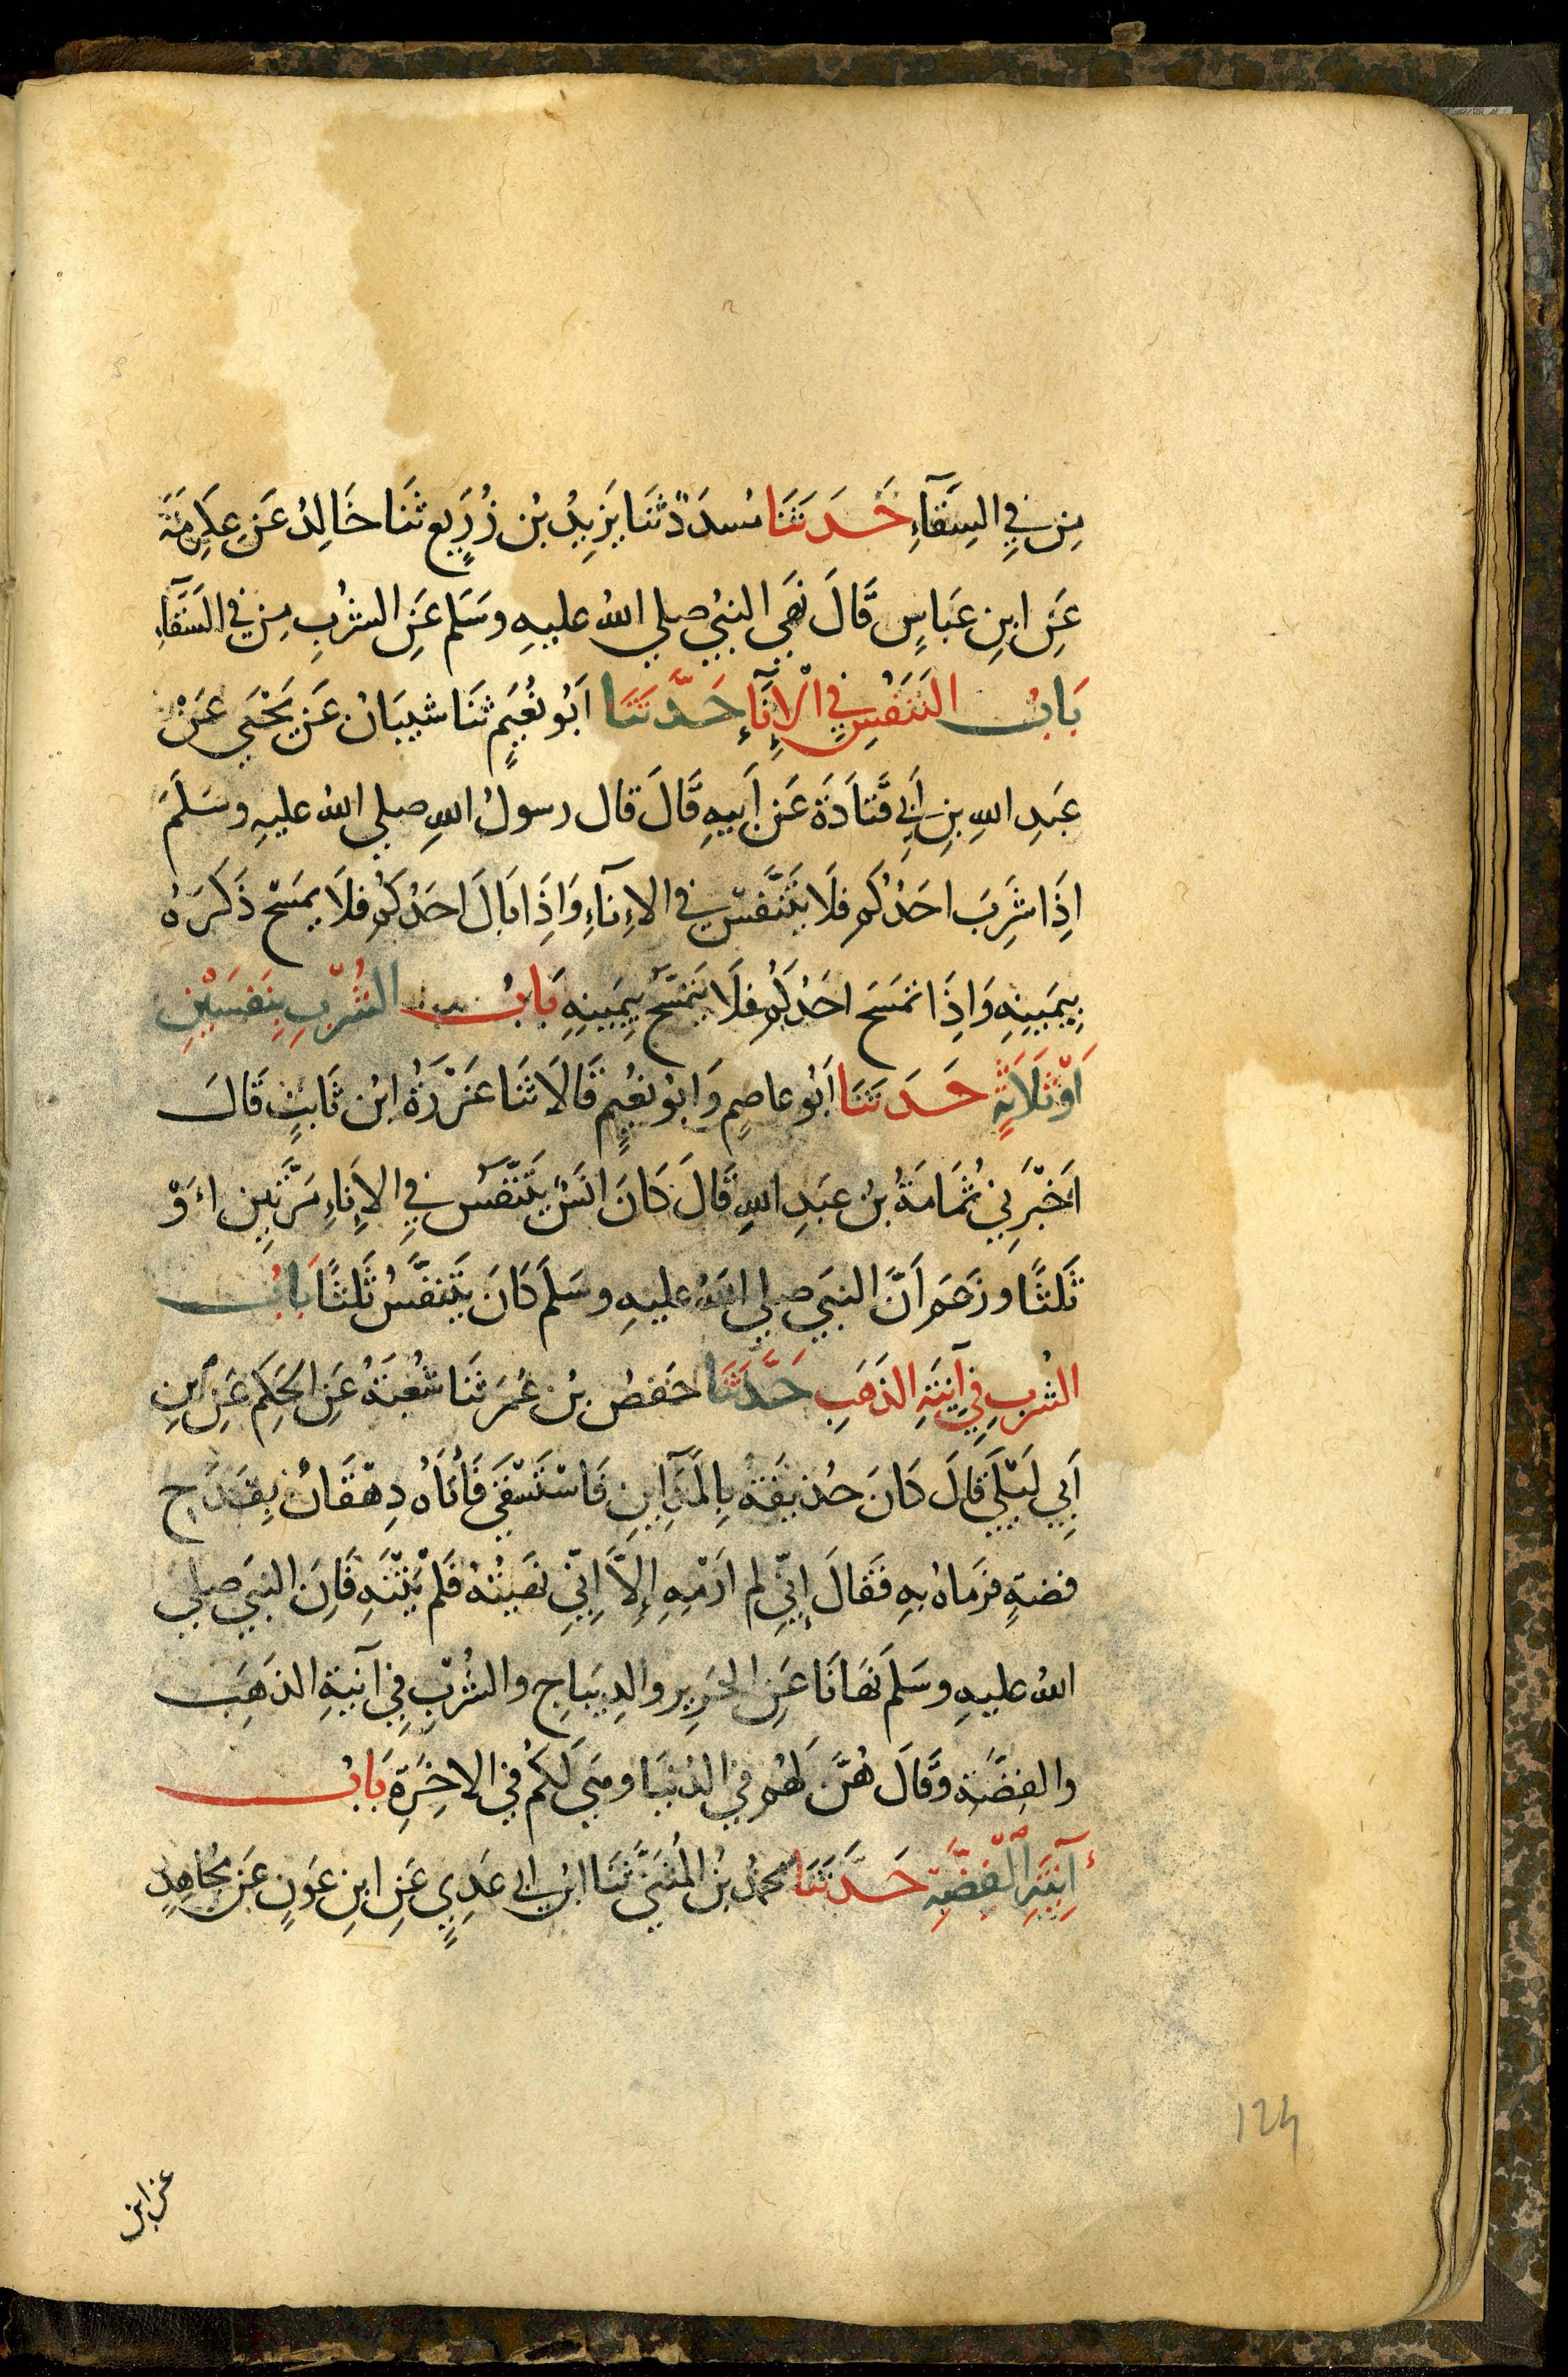 مِن فِي السِقَآءِ حَدَثَنَا مُسدَدٌ ثَنَا يَزِيدُ بْن زُرَيعٍ ثَنَا خَالِدُ عَن عِكرِمَةَ
عَنِ ابنِ عَبَاسٍ قَالَ نَهَي النبيُ صلي اللهُ عليهِ وسَلَم عَنِ الشُربِ مِن في السَقَآءِ
بَابُ التَنَفُسِ فِي الْإِنَآءِ حَدَّثَنَا اَبُو نُعَيمٍ ثَنَا شَيبَانُ عَن يَحْيَي عَنْ
عَبدِ اللهِ بنِ أَبِي قَتَادَةَ عَن أَبيهِ قَالَ قال رسولُ اللهِ صلي اللهُ عليهِ وسَلَمَ
اِذَا شَرِبَ احَدُكُم فلَا يَتَنَفسْ في الاِنآءِ وَاِذَا بَالَ احَدُكُم فلَا يمسَح ذَكَرَهُ
بِيمَينِهِ وَاِذَا تمسَحَ احَدُكُم فلَا يَتَمَسَّح بيَمينِهِ بَابُ الشُرْبِ بِنَفسَيْنِ
اَوْ ثَلَاثَةٍ حَدَثَنَا اَبُو عاصِمٍ وَابُو نُعَيمٍ قَالَا ثَنَا عَزْرَةُ ابْن ثَابتٍ قَالَ
اَخْبَرَنِي ثُمَامَةُ بنُ عبَدِ اللهِ قَالَ كَانَ انَسٌ يَتَنَفّسُ فِي الاِنَاءِ مَرَّتَينِ اَوْ
ثَلثًا وزَعَم اَنَّ النبَي صلي اللهُ عليهِ وسَلَم كَانَ يَتَنفَّسُ ثَلثًا بَابُ
الشُربِ فِي آنِيَةِ الذَهَبِ حَدَّثَنَا حَفصُ بنُ عُمَرَ ثَنَا شُعْبَةُ عَنِ الحَكِم عَنِ ابنِ
اَبِي لَيْلَي قَالَ كَانَ حُذيفَةُ بِالمَدَاينِ فَاسْتَسْقَي فَأَتَاهُ دِهْقَانُ بِقَدَحِ
فضةٍ فرَماهُ بهِ فَقَالَ إِنّي لم ارْمِهِ إِلاَّ اِنّيِ نَهَيتُهُ فَلَمْ يَنْتَهِ فَاِنَ النبَي صلي
اللهُ عليهِ وسَلَم نَهَانَا عَنِ الحَرِير والدِيبَاجِ والشُرْبِ فِي آنيَةِ الذَهَبِ
والفِضَةِ وقَالَ هُنَّ لَهُم في الدُنيَا وهي لَكُم في الاخِرَةِ بَابُ
آنِيَةِ الْفِضَّةِ حَدَّثَنَا محمدُ بنُ المُثنَيّ ثَنَا ابنُ ابي عَدِيٍ عَنِ ابنِ عَونٍ عَن مُجَاهِدٍ
عن ابن
124